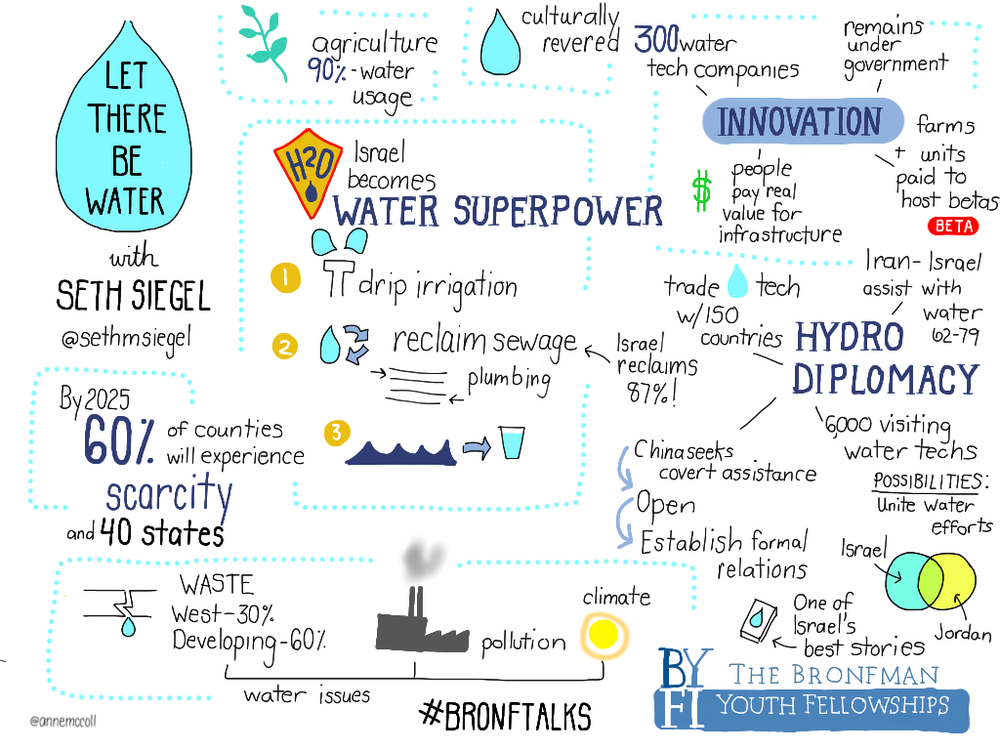 LET
THERE
BE
WATER
with
SETH SIEGEL
@sethmsiegel
agriculture
90%-water
usage
culturally
revered
300 water
tech companies
remains
under
government
INNOVATION
farms
+ units
paid to
host betas
BETA
$
people
pay real
value for
infrastructure
H2O
Israel
becomes
WATER SUPERPOWER
1
drip irrigation
2
reclaim sewage
plumbing
Israel
reclaims
87%!
3
By 2025
60% of counties
will experience
scarcity
and 40 states
trade tech
w/150
countries
Iran-Israel
assist with
water
62-79
HYDRO
DIPLOMACY
6,000 visiting
water techs
China seeks
covert assistance
Open
Establish formal
relations
POSSIBILITIES:
Unite water
efforts
Israel
Jordan
One of
Israel's
best stories
WASTE
West-30%
Developing-60%
pollution
climate
water issues
#BRONFTALKS
BY
FI
THE BRONFMAN
YOUTH FELLOWSHIPS
@annemccoll